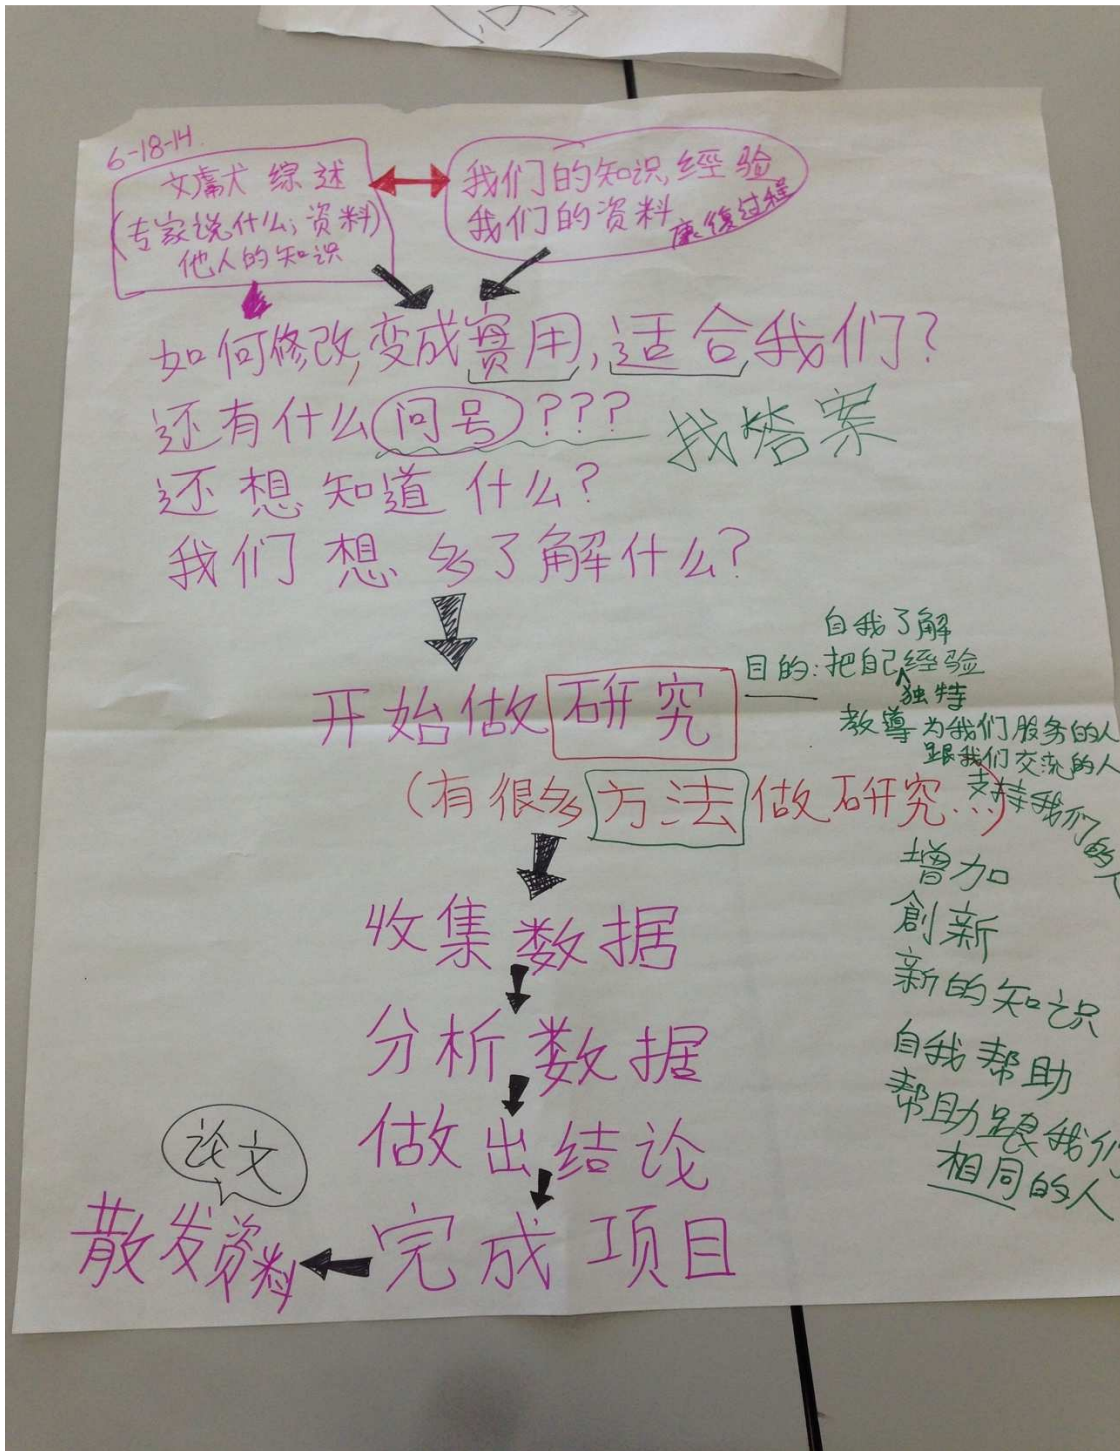 6-18-14.
文献 综述
(专家说什么; 资料)
他人的知识
我们的知识, 經验
我们的资料
康復过程
如何修改, 变成實用, 适合我们?
还有什么问号???
找答案
还想知道什么?
我们想多了解什么?
开始做研究
自我了解
目的: 把自己经验
独特
教導为我们服务的人
跟我们交流的人
支持我们的人
(有很多方法做研究...)
增加
創新
新的知识
自我帮助
帮助跟我们
相同的人
收集数据
分析数据
做出结论
完成项目
论文
散发资料